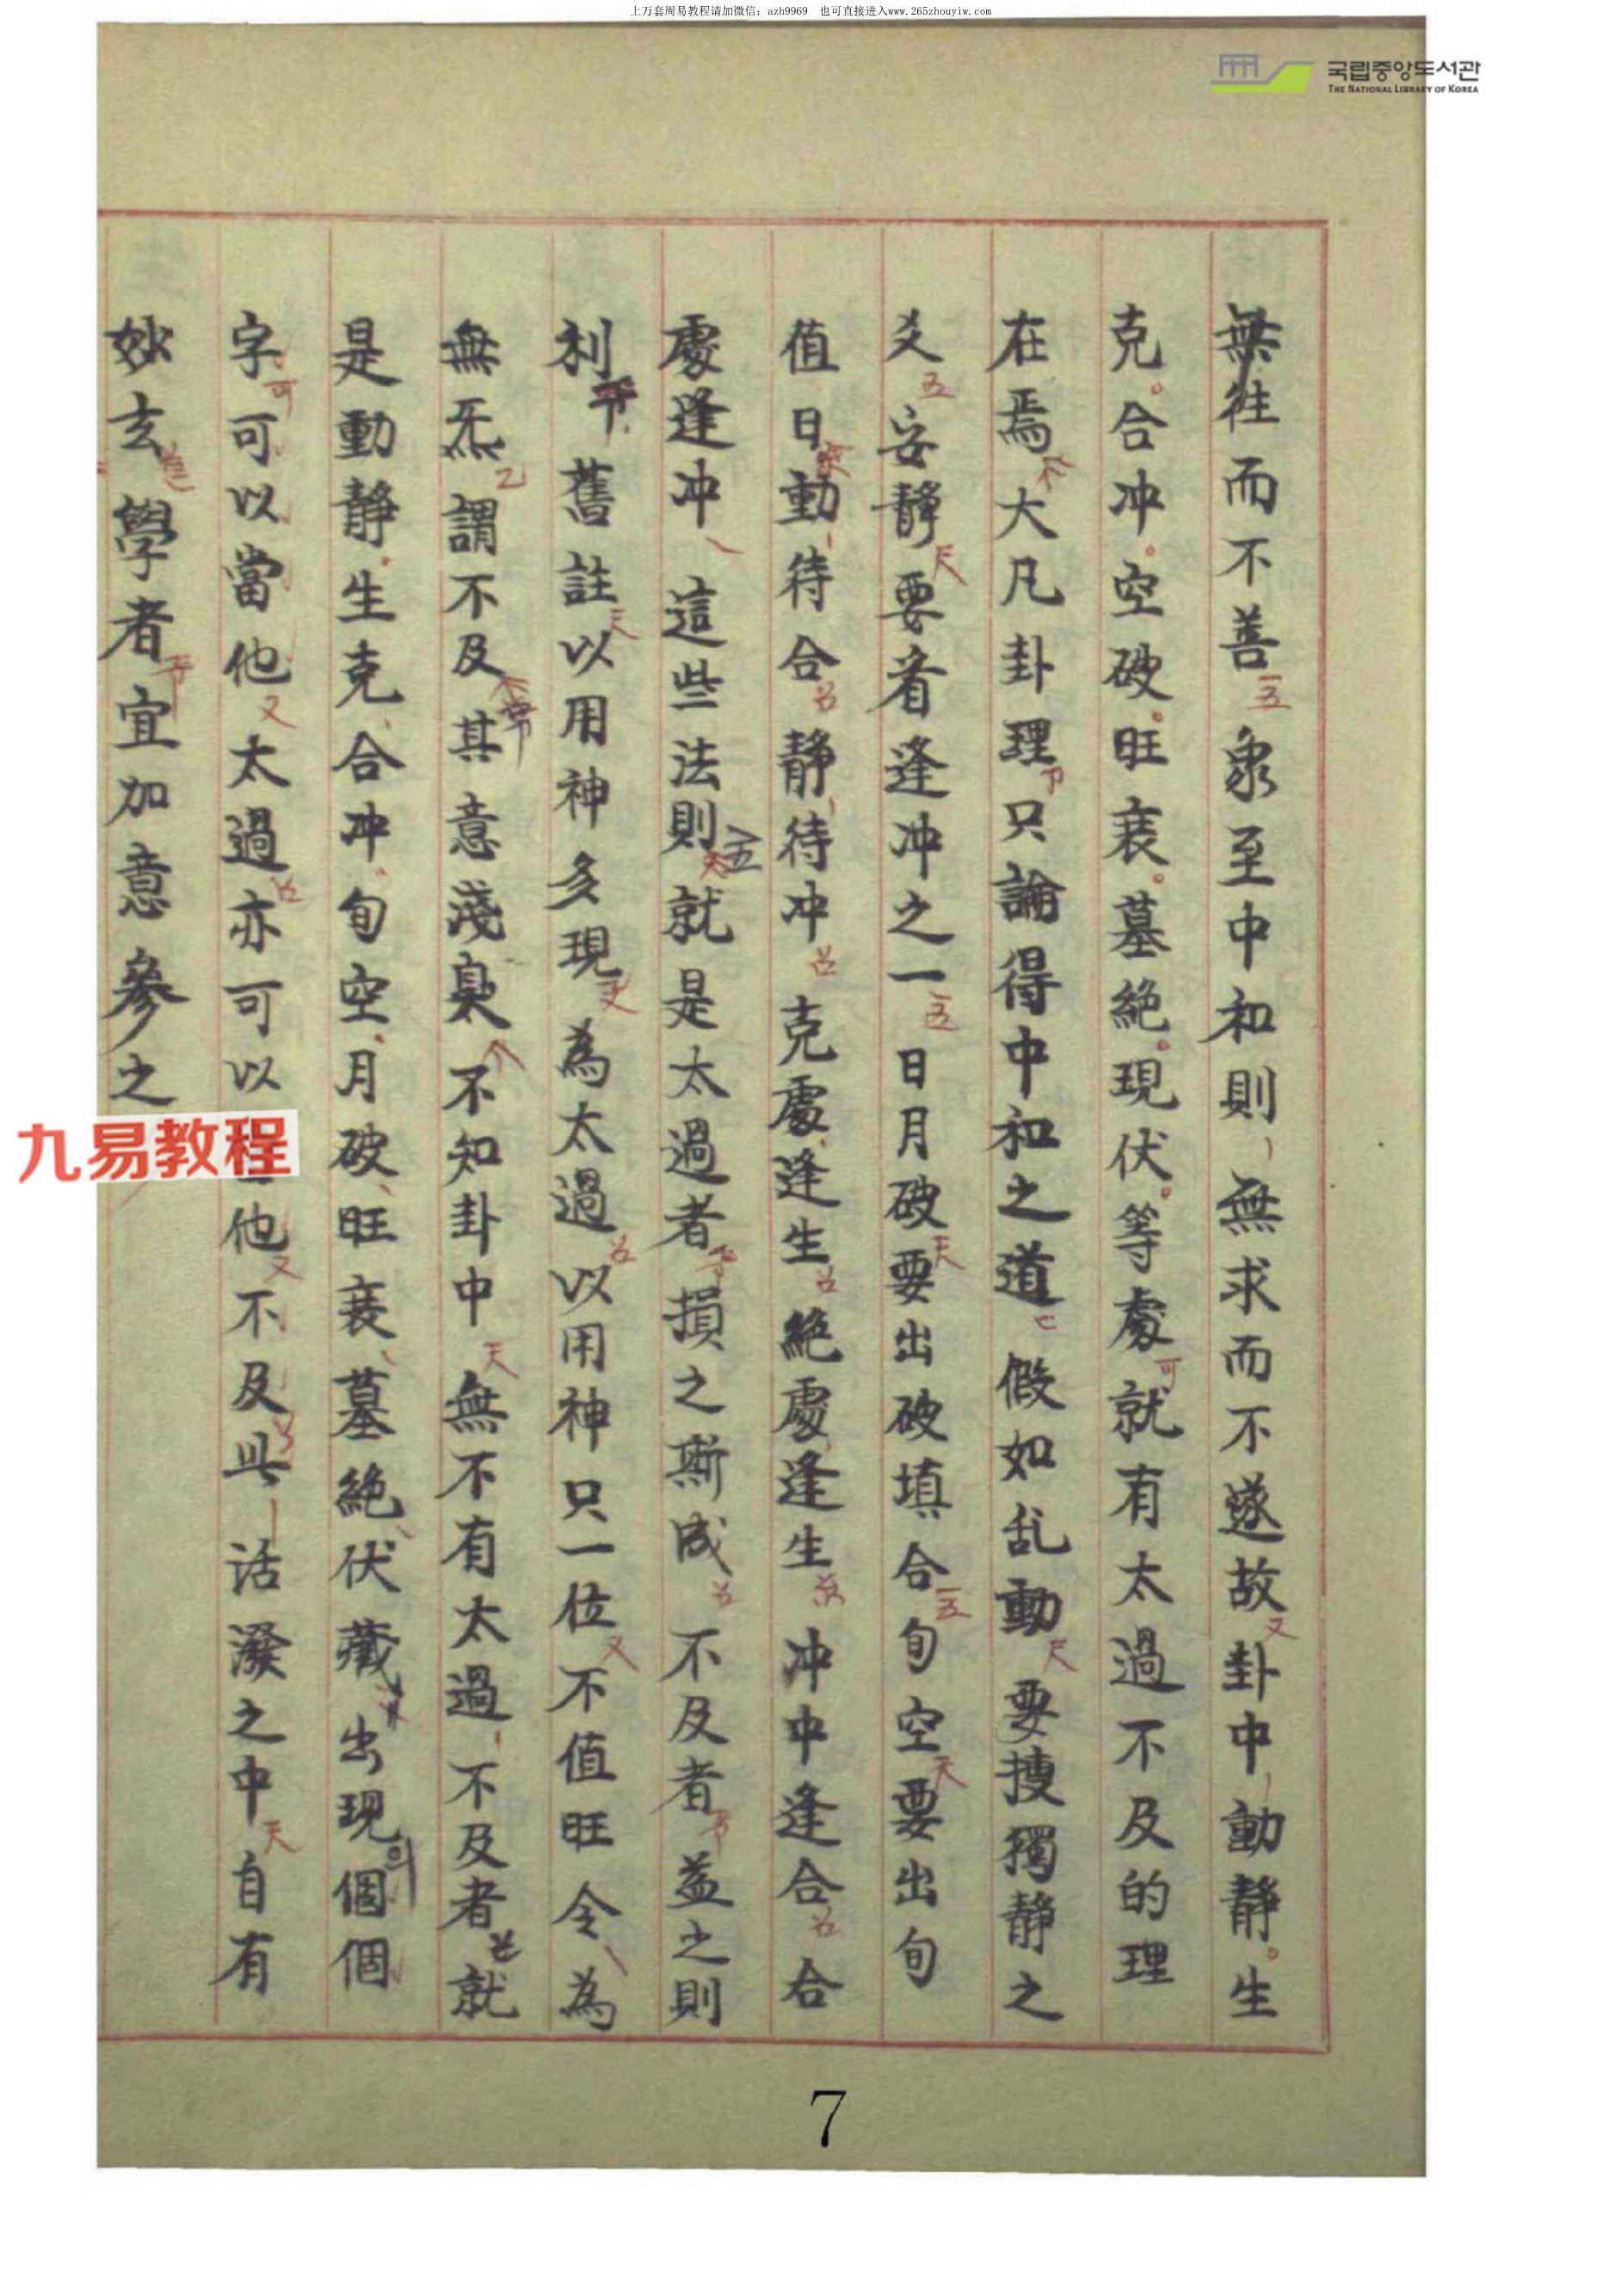 上万套周易教程请加微信：azh9969　也可直接进入www.265zhouyiw.com
국립중앙도서관
THE NATIONAL LIBRARY OF KOREA
無往而不善象至中和則無求而不遂故卦中動靜生
克合冲空破旺衰墓絶現伏等處就有太過不及的理
在焉大凡卦理只論得中和之道假如乱動要搜獨靜之
爻安靜要看逢冲之一日月破要出破填合旬空要出旬
值日動待合靜待冲克處逢生絶處逢生冲中逢合合
處逢冲這些法則就是太過者損之斯成不及者益之則
利舊註以用神多現為太過以用神只一位不值旺令為
無炁謂不及其意淺臭不知卦中無不有太過不及者就
是動靜生克合冲旬空月破旺衰墓絶伏藏出現個個
字可以當他太過亦可以他不及此活潑之中自有
妙玄學者宜加意參之
九易教程
7